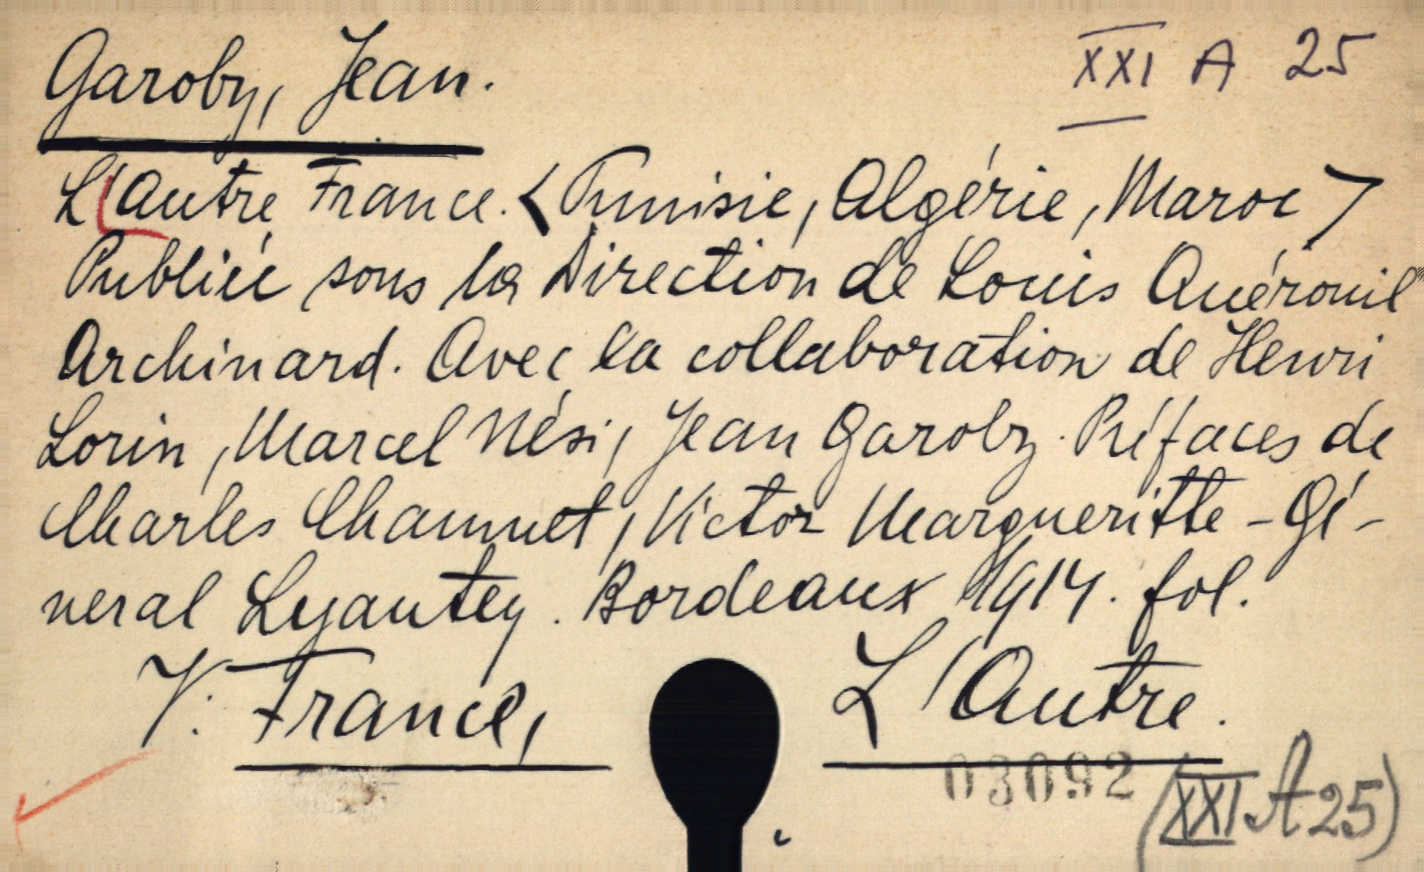 Garoby, Jean. XXI A 25
L'Autre France. <Tunisie, Algérie, Maroc>
Publiée sous la Direction de Louis Quérouil
Archinard. Avec la collaboration de Henri
Lorin, Marcel Nési, Jean Garoby. Préfaces de
Charles Chaumet, Victor Margueritte - Gé-
neral Lyautey. Bordeaux 1914. fol.
V. France, L'Autre.
03092
(XXI A 25)